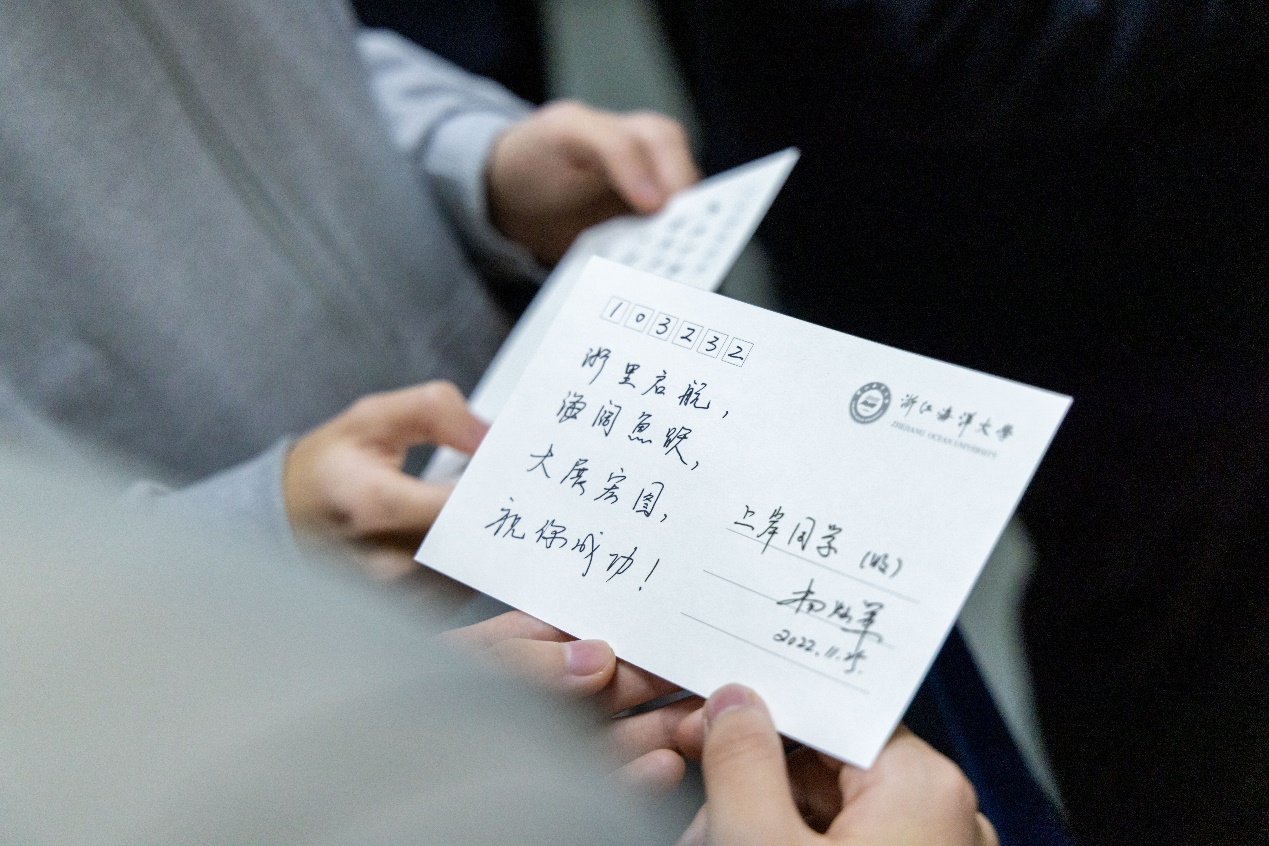 103232
浙里启航，
海阔鱼跃，
大展宏图，
祝你成功！
浙江海洋大學
ZHEJIANG OCEAN UNIVERSITY
上岸同学（收）
2022.11.25.